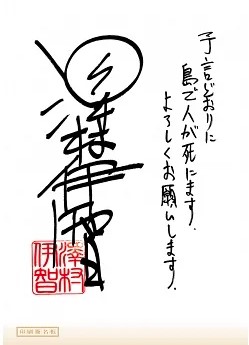 予言どおりに
島で人が死にます.
よろしくお願いします.
澤村伊智
澤村
伊智